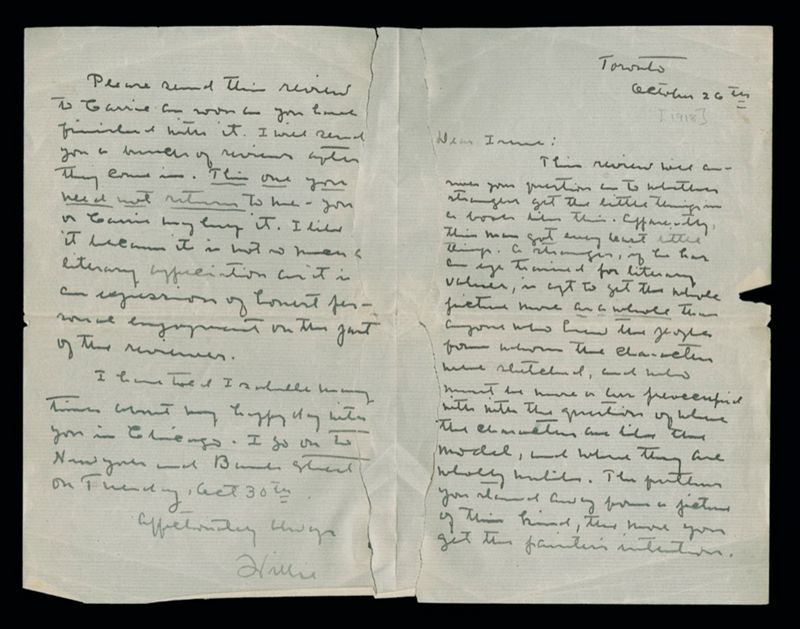 Toronto
October 26th
[1918]
Dear Irene:
This review will an-
swer your question as to whether
strangers get the little things in
a book like this. Apparently,
this man got every least little
thing. A stranger, if he has
an eye trained for literary
values, is apt to get the whole
picture more as a whole than
anyone who knew the people
from whom the characters
were sketched, and who
must be more or less preoccupied
with with the question of where
the characters are like the
model, and where they are
wholly unlike. The further
you stand away from a picture
of this kind, the more you
get the painters intention.
Please send this review
to Carrie as soon as you have
finished with it. I will send
you a bunch of reviews after
they come in. This one you
need not return to me - you
or Carrie may keep it. I like
it because it is not so much a
literary appreciation as it is
an expression of honest per-
sonal enjoyment on the part
of the reviewer.
I have told Isabelle many
times about my happy day with
you in Chicago. I go on to
New York and Bank Street
on Tuesday, Oct 30th.
Affectionately always
Willie